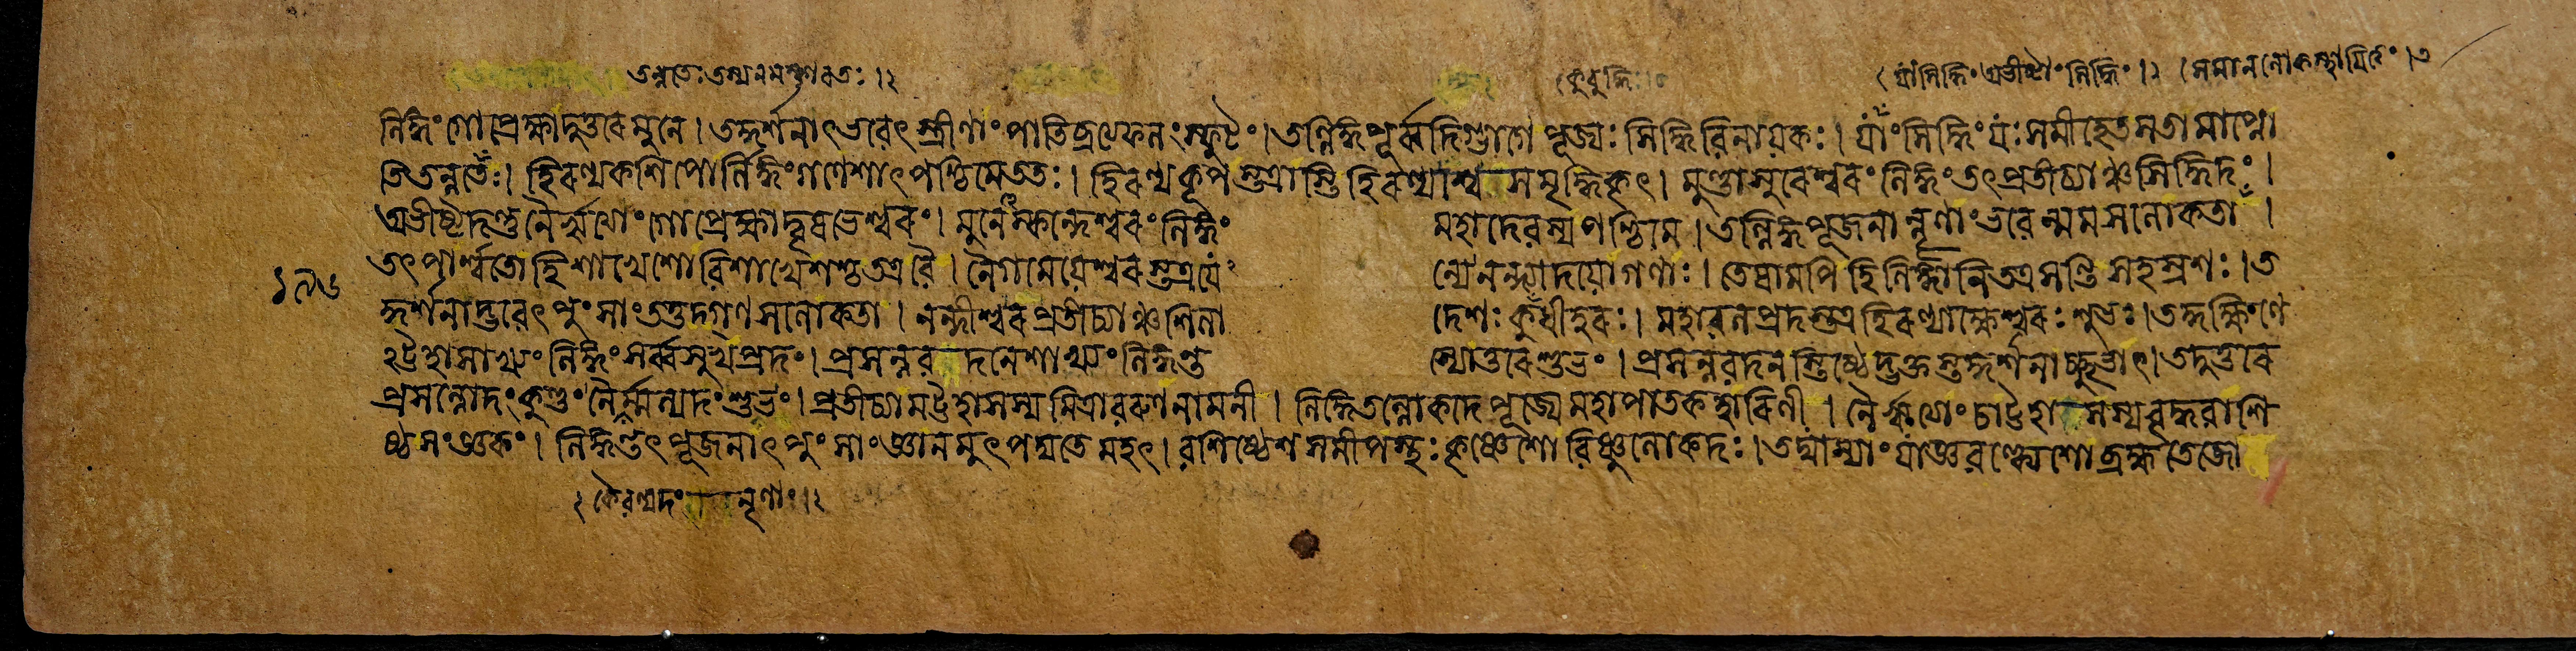 তন্নতেঃ তস্য নমস্কারতঃ ।২ কুবুদ্ধি যাং সিদ্ধিং অভীষ্টাং সিদ্ধিং ।২
লিঙ্গং গোপ্রেক্ষাদুত্তরে মুনে । তদ্দর্শনাৎ ভবেৎ স্ত্রীণাং পাতিব্রত্যফলং স্ফুটং । তল্লিঙ্গপূর্ব্বদিগ্ভাগে পূজ্যঃ সিদ্ধিবিনায়কঃ । যাং সিদ্ধিং যঃ সমীহেত স তামাপ্নো
তি তন্নতেঃ । হিরণ্যকশিপোর্লিঙ্গং গণেশাৎ পশ্চিমে ততঃ । হিরণ্যকূপস্তত্রাস্তি হিরণ্যাশ্বসমৃদ্ধিকৃৎ । মুণ্ডাসুরেশ্বরং লিঙ্গং তৎপ্রতীচ্যাঞ্চ সিদ্ধিদং ।
অভীষ্টদন্তু নৈরৃত্যাং গোপ্রেক্ষাদ্বৃষভেশ্বরং । মুনে স্কন্দেশ্বরং লিঙ্গং মহাদেবস্য পশ্চিমে । তল্লিঙ্গপূজনান্নৃণাং ভবেন্মম সলোকতা ।
তৎপার্শ্বতো হি শাখেশো বিশাখেশশ্চ তত্র বৈ । নৈগমেয়েশ্বরস্তত্র যেন্যে নন্দ্যাদয়ো গণাঃ । তেষামপি হি লিঙ্গানি তত্র সন্তি সহস্রশঃ । ত
১৯৬
দ্দর্শনাদ্ভবেৎ পুংসাং তত্তদ্গণসলোকতা । নন্দীশ্বরপ্রতীচ্যাঞ্চ শিলাদেশঃ কুধীহরঃ । মহাবলপ্রদস্তত্র হিরণ্যাক্ষেশ্বরঃ শুভঃ । তদ্দক্ষিণে
ট্টহাসাখ্যং লিঙ্গং সর্ব্বসুখপ্রদং । প্রসন্নবদনেশাখ্যং লিঙ্গন্তস্যোত্তরে শুভং । প্রসন্নবদনস্তিষ্ঠেদ্ভক্তস্তদ্দর্শনাচ্ছুভাৎ । তদুত্তরে
প্রসন্নোদং কুণ্ডং নৈর্ম্মল্যদং শুভং । প্রতীচ্যামট্টহাসস্য মিত্রাবরুণনামনী । লিঙ্গে তল্লোকদে পূজ্যে মহাপাতকহারিণী । নৈরৃত্যাং চাট্টহাসস্য বৃদ্ধবাশি
ষ্ঠসংজ্ঞকং । লিঙ্গন্তৎপূজনাৎ পুংসাং জ্ঞানমুৎপদ্যতে মহৎ । বশিষ্ঠেশসমীপস্থঃ কৃষ্ণেশো বিষ্ণুলোকদঃ । তদ্যাম্যাং যাজ্ঞবল্ক্যেশো ব্রহ্মতেজো
নৃণাং ।২